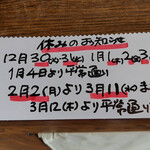 休みのお知らせ
12月30(火)31(水) 1月1(木)2(金)3(土)
1月4日より平常通り
2月2(月)より3月11(水)まで
3月12(木)より平常通り